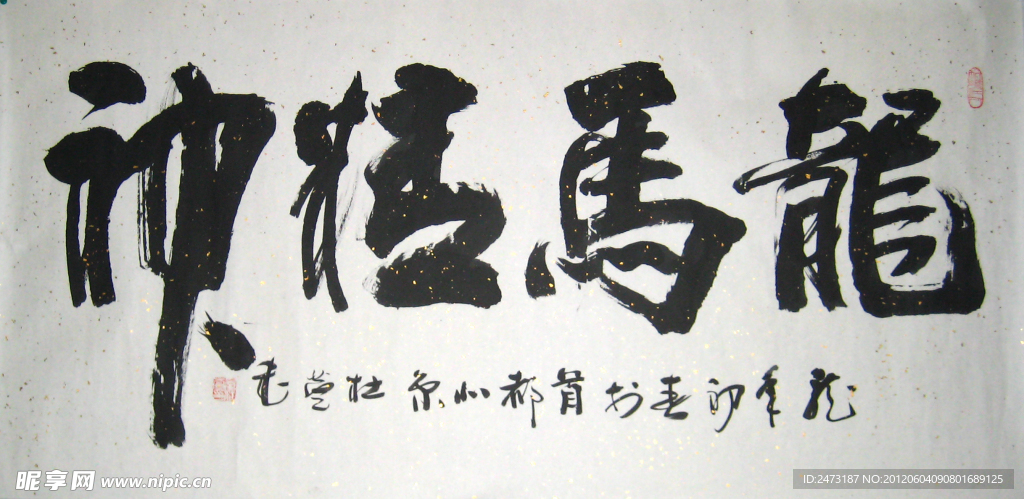 龍馬精神
龍年初春於首都北京杜書
昵享网 www.nipic.cn
ID:2473187 NO:20120604090801689125